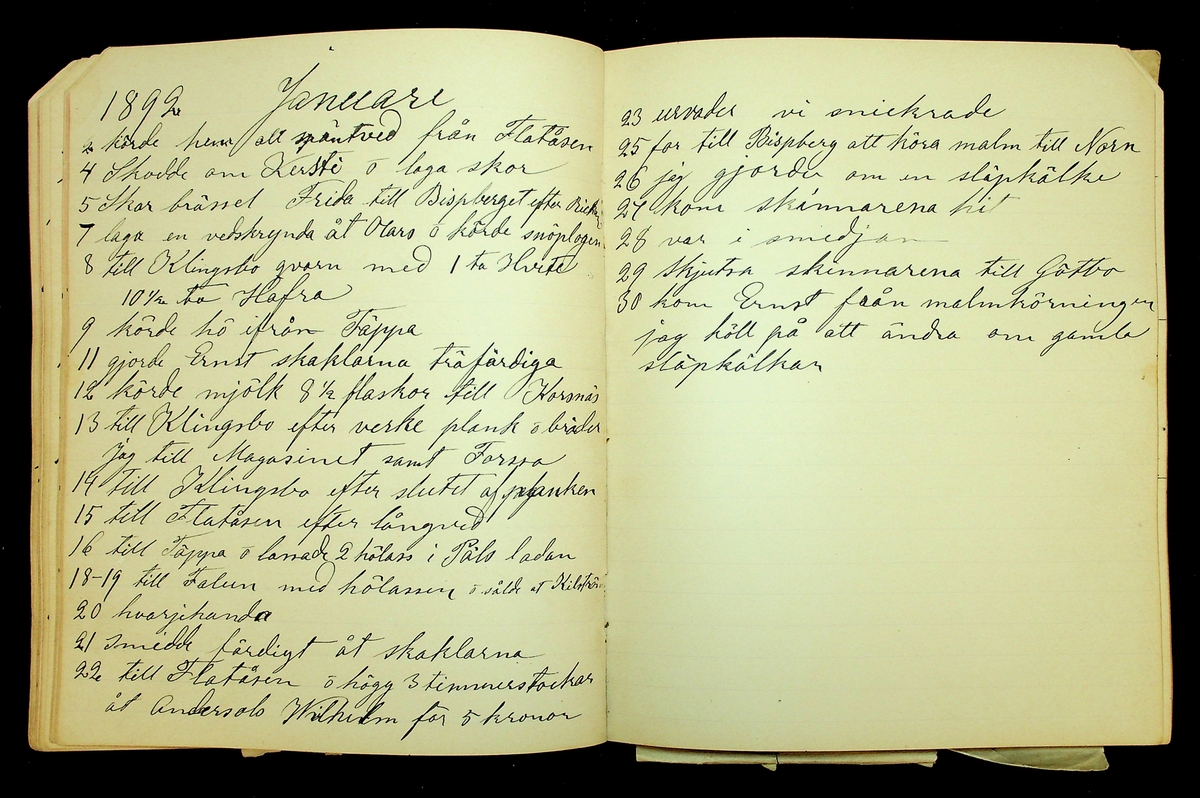 1892 Januari
2 körde hem allt späntved från Flatåsen
4 Skodde om Kersti o laga skor
5 Skar brässel Frida till Bispberget efter
7 laga en vedskrynda åt Olars o körde snöplogen
8 till Klingsbo qvarn med 1 ta Hvete
10 1/2 ta Hafra
9 körde hö ifrån Täppa
11 gjorde Ernst skaklarna träfärdiga
12 körde mjölk 8 1/2 flaskor till Korsnäs
13 till Klingsbo efter verke plank o bräder
jag till Magasinet samt Forssa
14 till Klingsbo efter slutet af planken
15 till Flatåsen efter långved
16 till Täppa o lassade 2 hölass i Påls ladan
18-19 till Falun med hölassen o sålde at
20 hvarjehanda
21 smidde färdigt åt skaklarna
22 till Flatåsen o högg 3 timmerstockar
åt Andersols Wilhelm for 5 kronor
23 urvader vi snickrade
25 for till Bispberg att köra malm till Norn
26 jag gjorde om en släpkälke
27 kom skinnarena hit
28 var i smedjan
29 skjutsa skinnarena till Göttbo
30 kom Ernst från malmkörningen
jag höll på att ändra om gamla
släpkälkar